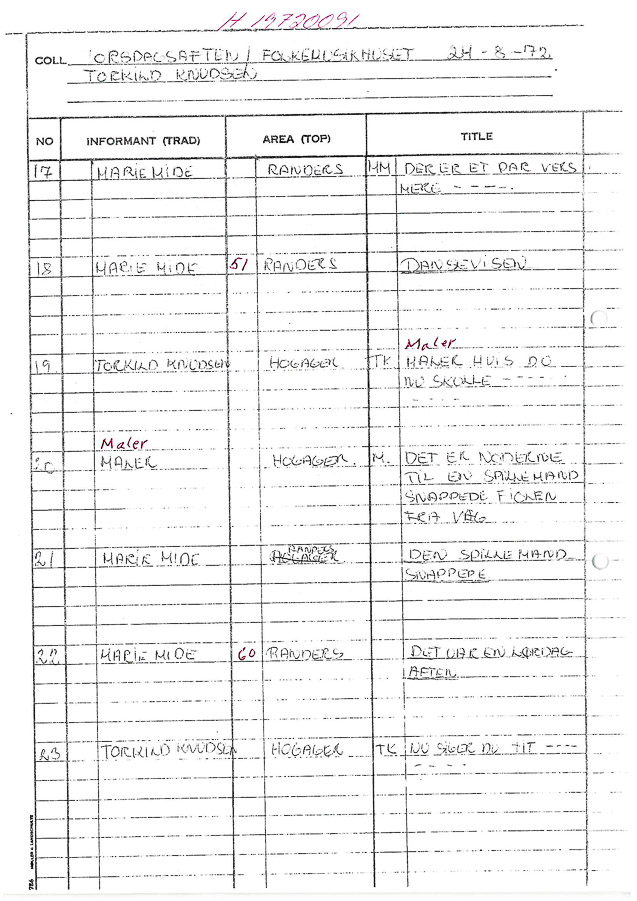 H 19720091
COLL TORSDAGSAFTEN / FOLKEMUSIKHUSET 24-8-72.
TORKILD KNUDSEN
NO INFORMANT (TRAD) AREA (TOP) TITLE
17 MARIE MIDE RANDERS MM DER ER ET PAR VERS
MERE - - - -.
18 MARIE MIDE 51 RANDERS DANSEVISEN
Maler
19 TORKILD KNUDSEN HOGAGER TK MALER HVIS DU
NU SKULLE - - - - -
- - - -.
Maler
20 MALER HOGAGER. M. DET ER NODERNE
TIL EN SPILLEMAND
SNAPPEDE FIOLEN
FRA VÆG
RANDERS
21 MARIE MIDE HOGAGER DEN SPILLEMAND
SNAPPEDE
22 MARIE MIDE 60 RANDERS DET VAR EN LØRDAG
AFTEN
23 TORKILD KNUDSEN HOGAGER TK NU SIGER DU TIT - - - -
- - - - -
786